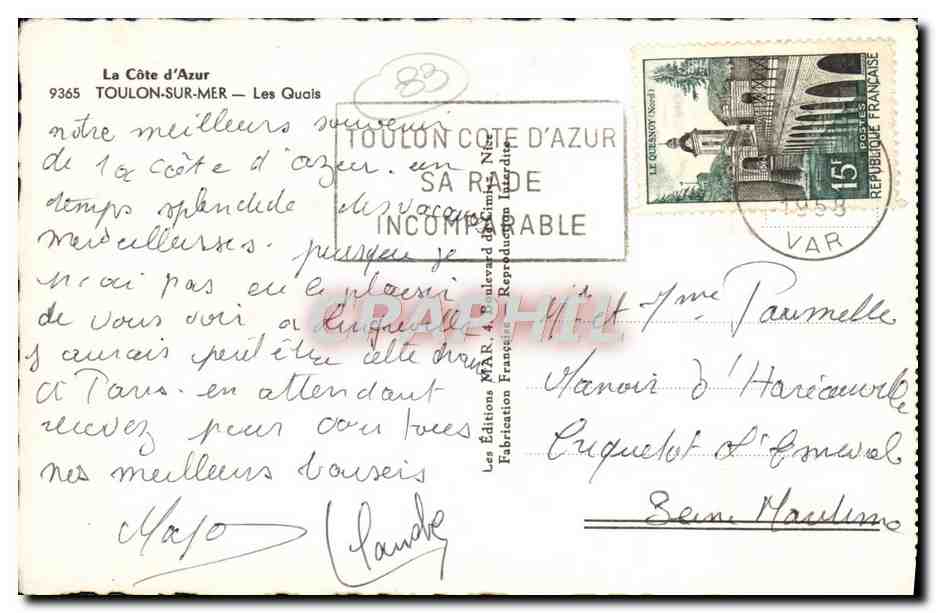 La Côte d'Azur
9365 TOULON-SUR-MER — Les Quais
83
notre meilleurs souvenir
de la côte d'azur. un
temps splendide des vacances
merveilleuses. puisque je
n'ai pas eu le plaisir
de vous voir a
j'aurais peut être cette
a Paris. en attendant
recevez pour vous tous
nos meilleurs baisers
Majo Claude
TOULON COTE D'AZUR
SA RADE
INCOMPARABLE
LE QUESNOY (Nord)
15F
POSTES
REPUBLIQUE FRANÇAISE
1958
VAR
Les Éditions MAR, 4, Boulevard de Cimiez, Nice
Fabrication Française - Reproduction Interdite
GRAPHIL
Mr et Mme Paumelle
Manoir d'Harcanville
Criquetot l'Esneval
Seine Maritime